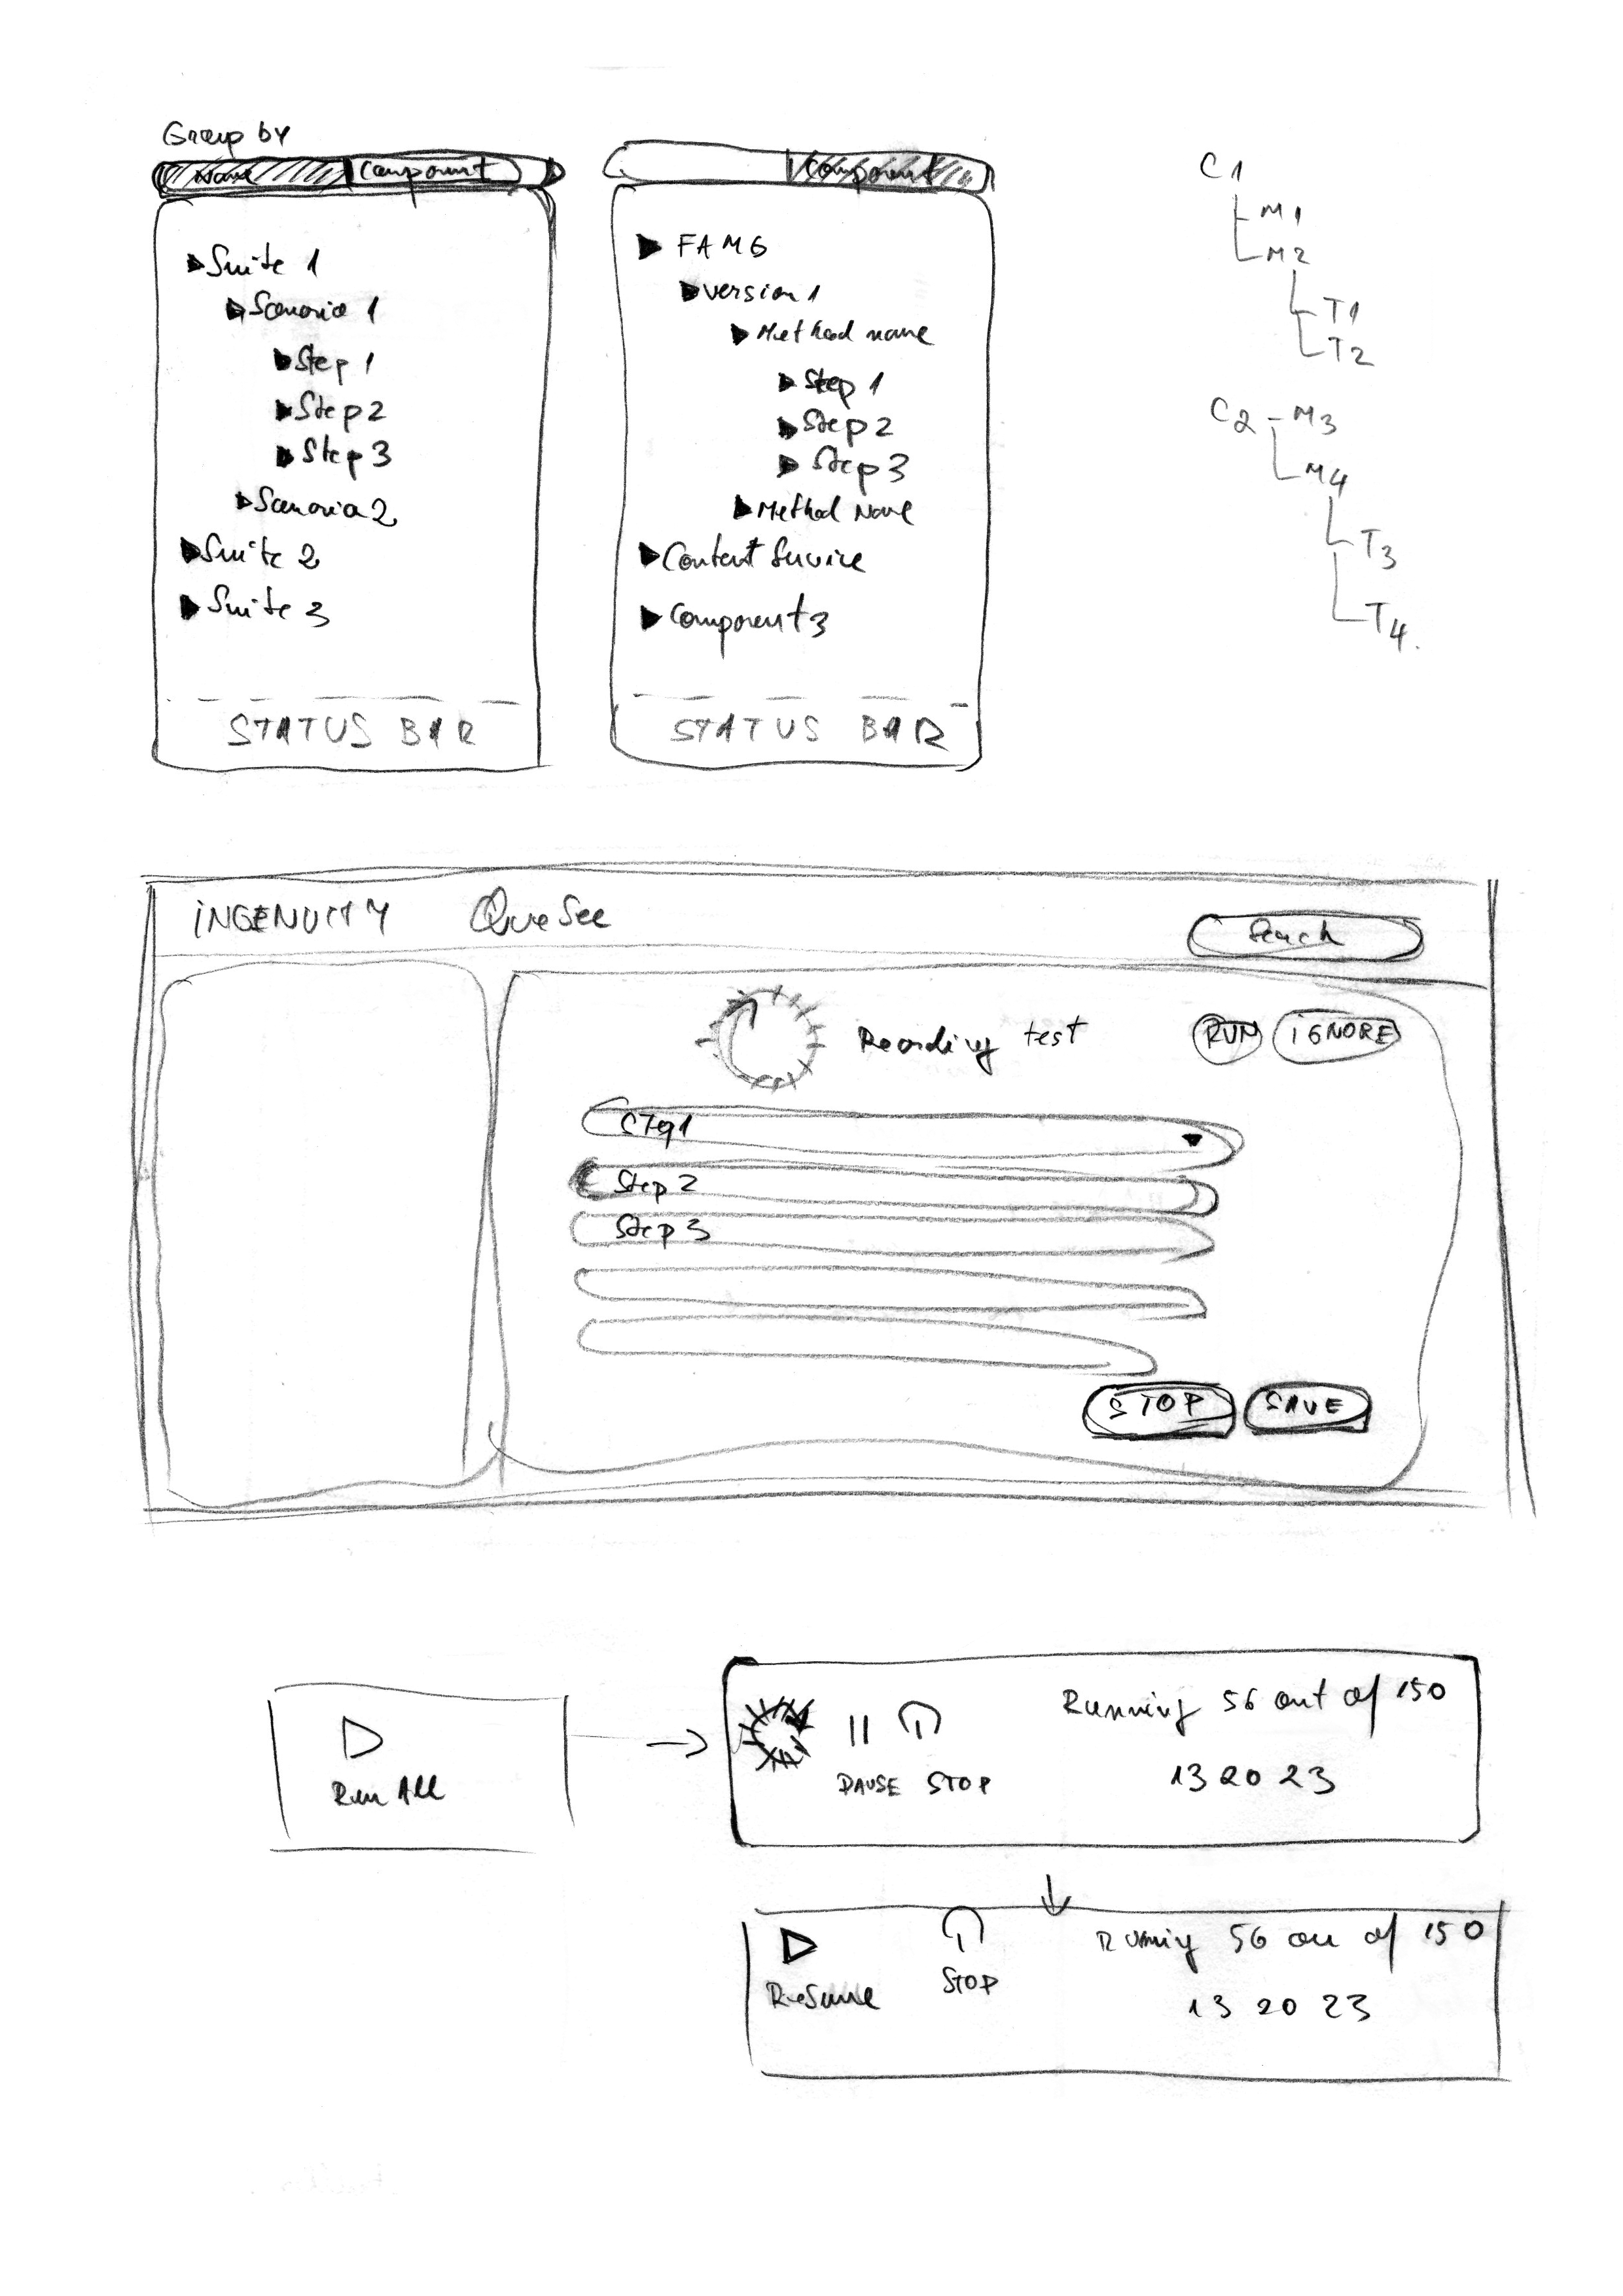 Group by
Name Component
Suite 1
Scenario 1
Step 1
Step 2
Step 3
Scenario 2
Suite 2
Suite 3
STATUS BAR
Component
FAMG
version 1
Method name
Step 1
Step 2
Step 3
Method Name
Content Service
Component 3
STATUS BAR
C1
M1
M2
T1
T2
C2 - M3
M4
T3
T4.
INGENUITY QueSee
Search
Recording test
RUN IGNORE
Step 1
Step 2
Step 3
STOP SAVE
Run All
PAUSE STOP
Running 56 out of 150
13 20 23
Resume
STOP
Running 56 ou of 150
13 20 23